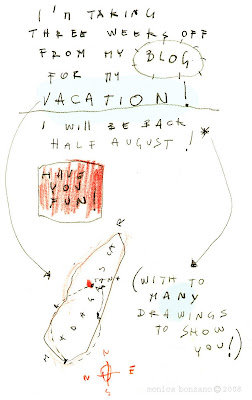 I'M TAKING
THREE WEEKS OFF
FROM MY BLOG
FOR MY
VACATION!
I WILL BE BACK
HALF AUGUST!
HAVE
YOU
FUN!
(WITH TO
MANY
DRAWINGS
TO SHOW
YOU!)
N
E
monica bonzano © 2008